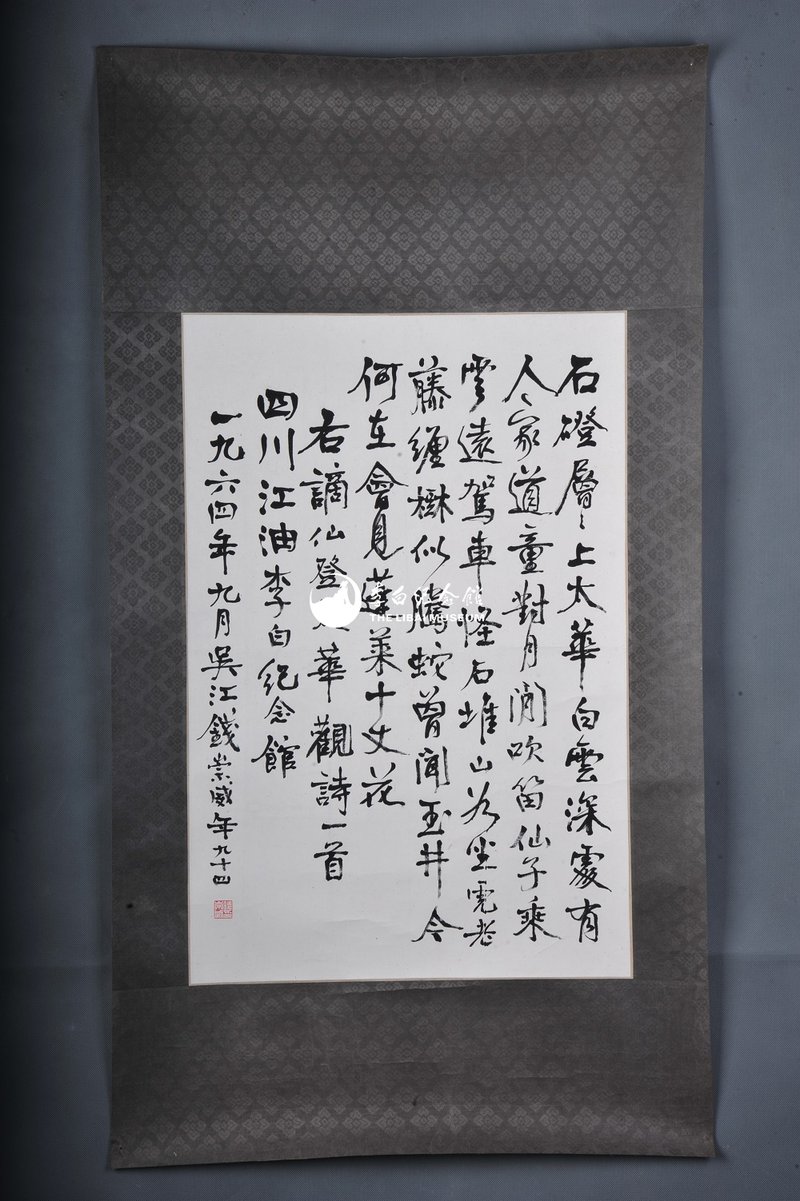 石磴層々上太華白雲深處有
人家道童對月閒吹笛仙子乘
雲遠駕車怪石堆山如坐虎老
藤纏樹似騰蛇曾聞玉井今
何在會見蓬萊十丈花
右謫仙登太華觀詩一首
四川江油李白纪念館
一九六四年九月吳江錢崇威年九十四
李白纪念館
THE LIBAI MUSEUM